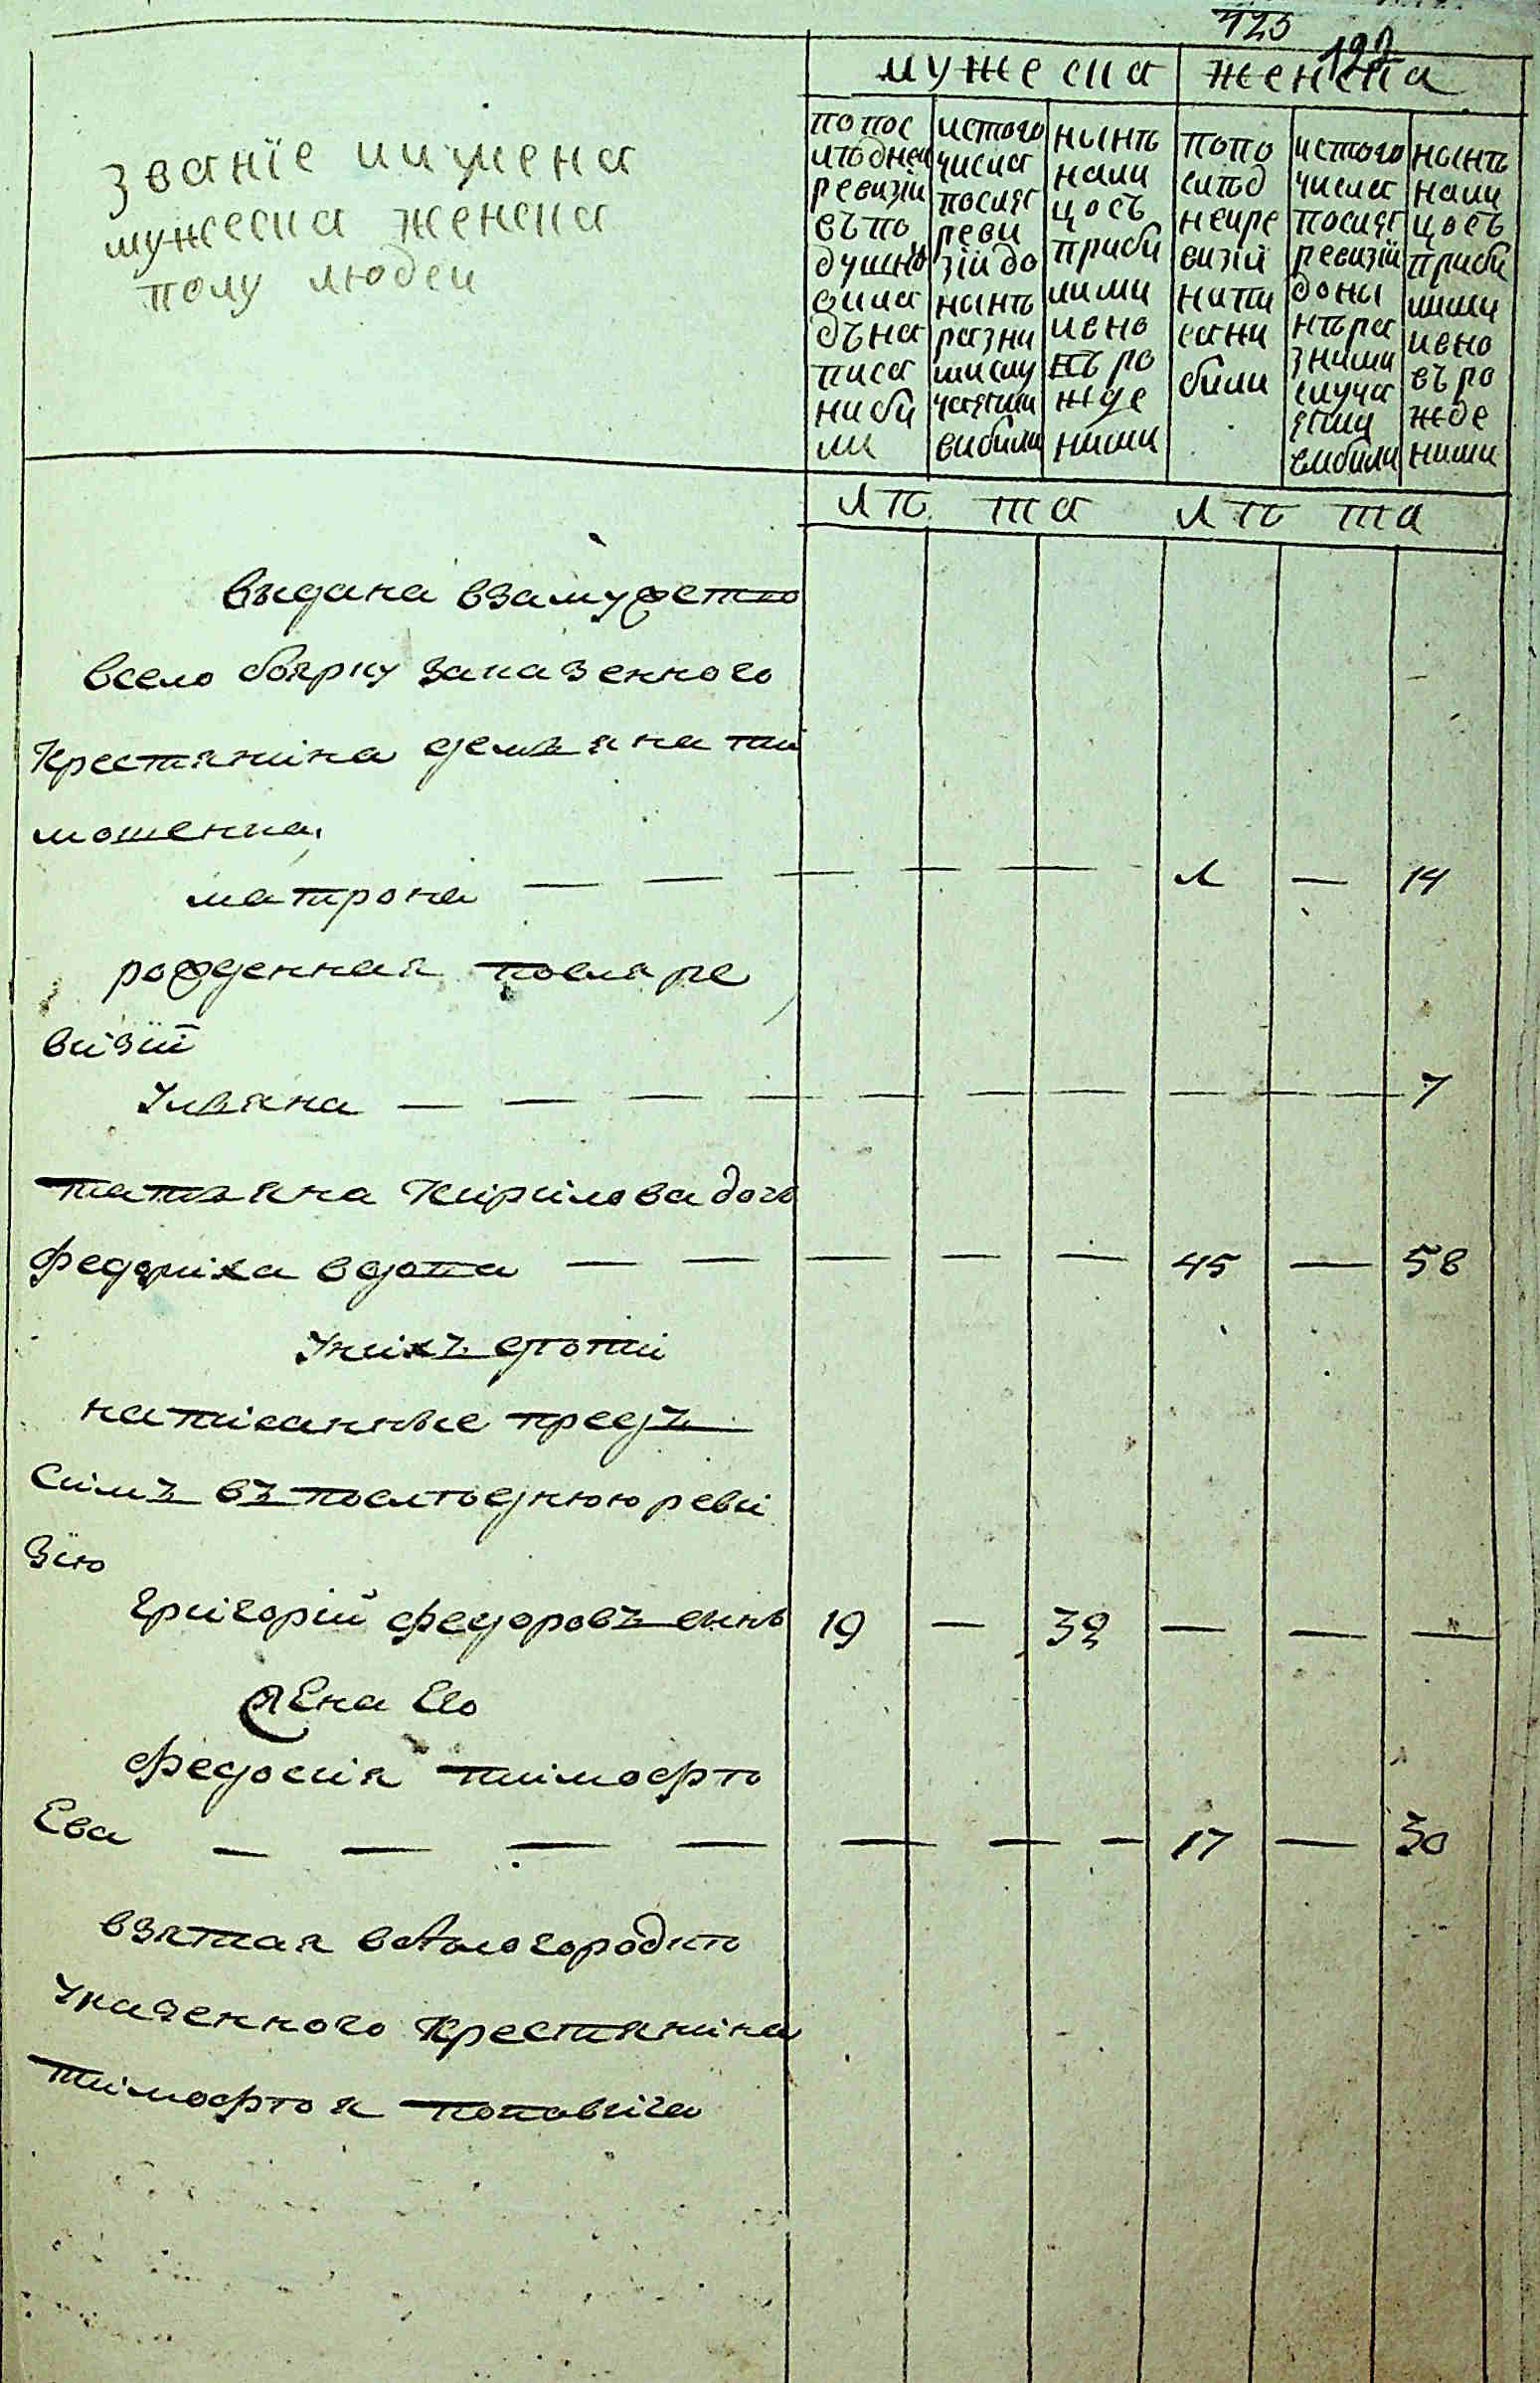 425
званїе иимена
мужеска женска
полу людеи
мужеска женска
попос лѣднеи ревизїи въпо душно окла дъна писа ниби ли
истого числа послѣ реви зїи до нынѣ разни мислу чаями вибили
нынѣ нали цосъ приби лими ивно въ ро жде ними
попо слѣд неире визїи напи сани били
истого числа послѣ ревизїи доны нѣра зними случа ями выбили
нынѣ нали цосъ приби лими ивно въ ро жде ними
лѣ та лѣ та
выдана взамужетво
всело боярку заказенного
крестянина демьяна тиі
мошенка,
матрона — — — — — 1 — 14
рожденная послѣ ре
визїи
ульяна — — — — — — — — 7
татьяна кирилова дочь
федориха вдова — — — — — 45 — 58
уних дѣти
написанные предъ
симъ въ послѣднюю реви
зїю
григорїй федоровъ сынъ 19 — 32 — — —
жена Его
федосия тимофѣ
Ева — — — — — — — 17 — 30
взятая вбѣлогородкѣ
указенного крестянина
тимофѣя поповича